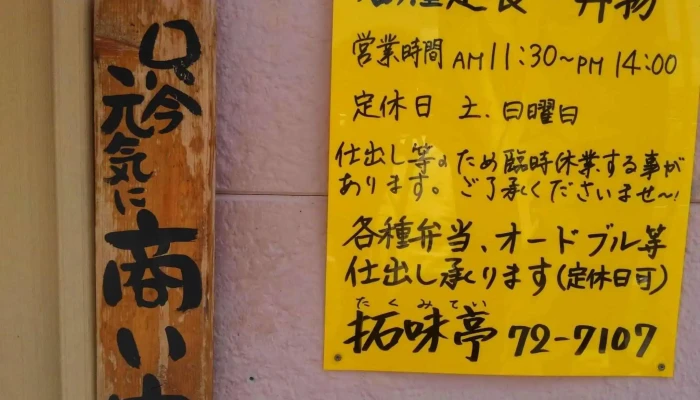 只今
、元気に
商い中
各種定食 丼物
営業時間 AM11:30~PM14:00
定休日 土、日曜日
仕出し等のため臨時休業する事が
あります。ご了承くださいませ~!
各種弁当、オードブル等
仕出し承ります(定休日可)
たくみてい
拓味亭 72-7107